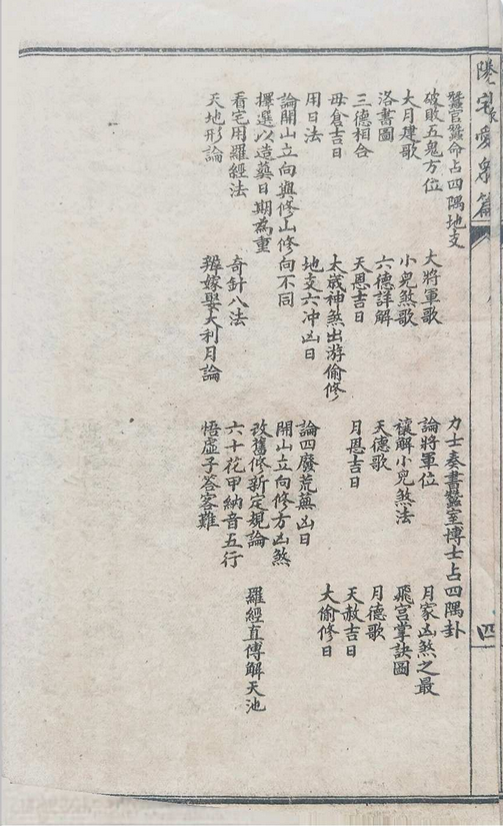 陽宅愛眾篇 四
蠶官蠶命占四隅地支 力士奏書蠶室博士占四隅卦
破敗五鬼方位 大將軍歌 論將軍位 月家凶煞之最
大月建歌 小兒煞歌 禳解小兒煞法 飛宮掌訣圖
洛書圖 六德詳解 天德歌 月德歌
三德相合 天恩吉日 月恩吉日 天赦吉日
母倉吉日 太歲神煞出游偷修 大偷修日
用日法 地支六冲凶日 論四廢荒蕪凶日
論開山立向與修山修向不同 開山立向修方凶煞
擇選以造葬日期為重 改舊修新定規論
看宅用羅經法 奇針八法 六十花甲納音五行 羅經直傳解天池
天地形論 辨嫁娶大利月論 悟虛子答客難